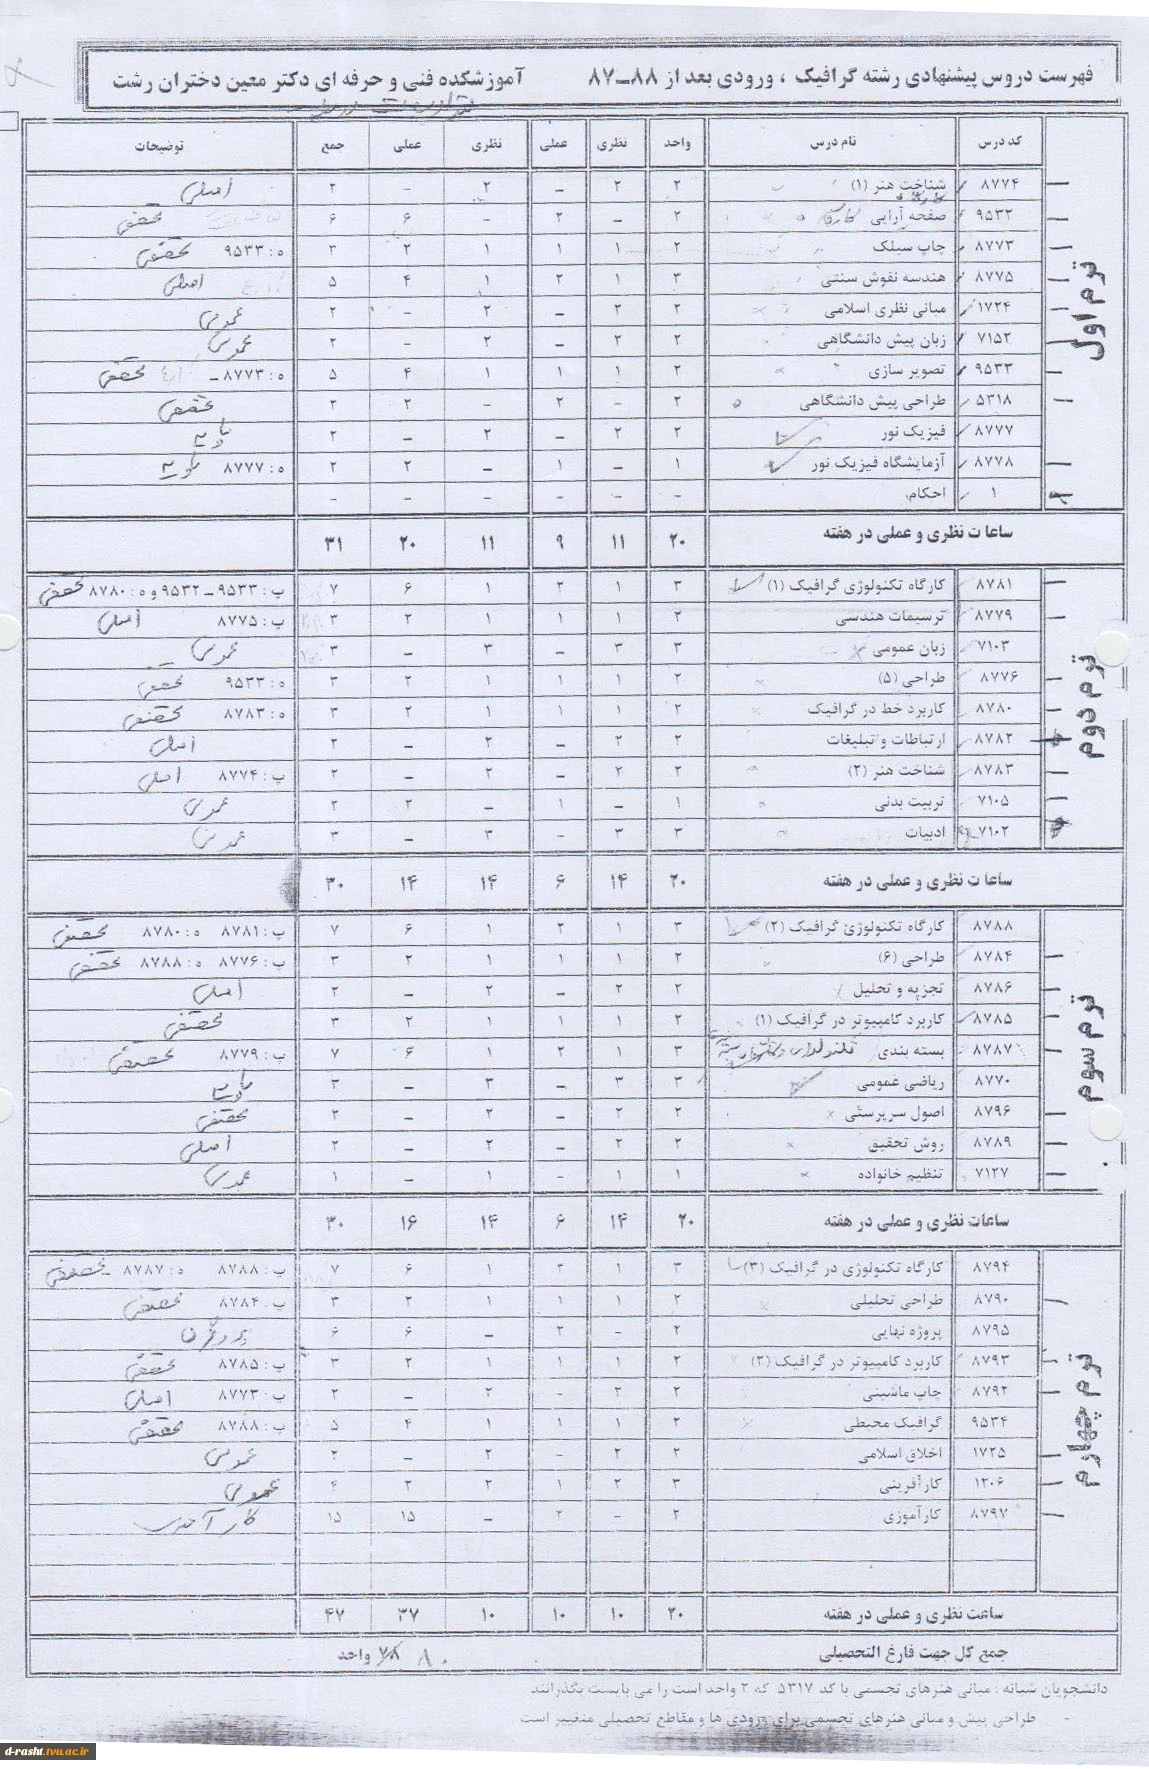 فهرست دروس پیشنهادی رشته گرافیک ، ورودی بعد از ۸۸-۸۷ آموزشکده فنی و حرفه ای دکتر معین دختران رشت
کد درس نام درس واحد نظری عملی نظری عملی جمع توضیحات
ترم اول
۸۷۷۴ شناخت هنر (۱) ۲ ۲ – ۲ – ۲ اصلی
۹۵۳۲ صفحه آرایی کارگاه ۲ – ۲ – ۶ ۶ تخصصی
۸۷۷۳ چاپ سیلک ۲ ۱ ۱ ۱ ۲ ۳ ه : ۹۵۳۳ تخصصی
۸۷۷۵ هندسه نقوش سنتی ۳ ۱ ۲ ۱ ۴ ۵ اصلی
۱۷۲۴ مبانی نظری اسلامی ۲ ۲ – ۲ – ۲ عمومی
۷۱۵۲ زبان پیش دانشگاهی ۲ ۲ – ۲ – ۲ عمومی
۹۵۳۳ تصویر سازی ۲ ۱ ۱ ۱ ۴ ۵ ه : ۸۷۷۳ – تخصصی
۵۳۱۸ طراحی پیش دانشگاهی ۲ – ۲ – ۲ ۲ تخصصی
۸۷۷۷ فیزیک نور ۲ ۲ – ۲ – ۲ پایه
۸۷۷۸ آزمایشگاه فیزیک نور ۱ – ۱ – ۲ ۲ ه : ۸۷۷۷ پایه
۱ احکام – – – – – –
ساعات نظری و عملی در هفته ۲۰ ۱۱ ۹ ۱۱ ۲۰ ۳۱
ترم دوم
۸۷۸۱ کارگاه تکنولوژی گرافیک (۱) ۳ ۱ ۲ ۱ ۶ ۷ پ : ۹۵۳۳ – ۹۵۳۲ و ه : ۸۷۸۰ تخصصی
۸۷۷۹ ترسیمات هندسی ۲ ۱ ۱ ۱ ۲ ۳ پ : ۸۷۷۵ اصلی
۷۱۰۳ زبان عمومی ۳ ۳ – ۳ – ۳ عمومی
۸۷۷۶ طراحی (۵) ۲ ۱ ۱ ۱ ۲ ۳ ه : ۹۵۳۳ تخصصی
۸۷۸۰ کاربرد خط در گرافیک ۲ ۱ ۱ ۱ ۲ ۳ ه : ۸۷۸۳ تخصصی
۸۷۸۲ ارتباطات و تبلیغات ۲ ۲ – ۲ – ۲ اصلی
۸۷۸۳ شناخت هنر (۲) ۲ ۲ – ۲ – ۲ پ : ۸۷۷۴ اصلی
۷۱۰۵ تربیت بدنی ۱ – ۱ – ۲ ۲ عمومی
۷۱۰۲ ادبیات ۳ ۳ – ۳ – ۳ عمومی
ساعات نظری و عملی در هفته ۲۰ ۱۴ ۶ ۱۴ ۱۴ ۳۰
ترم سوم
۸۷۸۸ کارگاه تکنولوژی گرافیک (۲) ۳ ۱ ۲ ۱ ۶ ۷ پ : ۸۷۸۱ ه : ۸۷۸۰ تخصصی
۸۷۸۴ طراحی (۶) ۲ ۱ ۱ ۱ ۲ ۳ پ : ۸۷۷۶ ه : ۸۷۸۸ تخصصی
۸۷۸۶ تجزیه و تحلیل ۲ ۲ – ۲ – ۲ اصلی
۸۷۸۵ کاربرد کامپیوتر در گرافیک (۱) ۲ ۱ ۱ ۱ ۲ ۳ تخصصی
۸۷۸۷ بسته بندی ۳ ۱ ۲ ۱ ۶ ۷ پ : ۸۷۷۹ تخصصی
۸۷۷۰ ریاضی عمومی ۳ ۳ – ۳ – ۳ پایه
۸۷۹۶ اصول سرپرستی ۲ ۲ – ۲ – ۲ تخصصی
۸۷۸۹ روش تحقیق ۲ ۲ – ۲ – ۲ اصلی
۷۱۲۷ تنظیم خانواده ۱ ۱ – ۱ – ۱ عمومی
ساعات نظری و عملی در هفته ۲۰ ۱۴ ۶ ۱۴ ۱۶ ۳۰
ترم چهارم
۸۷۹۴ کارگاه تکنولوژی در گرافیک (۳) ۳ ۱ ۲ ۱ ۶ ۷ پ : ۸۷۸۸ ه : ۸۷۸۷ – تخصصی
۸۷۹۰ طراحی تحلیلی ۲ ۱ ۱ ۱ ۲ ۳ پ : ۸۷۸۴ تخصصی
۸۷۹۵ پروژه نهایی ۲ – ۲ – ۶ ۶
۸۷۹۳ کاربرد کامپیوتر در گرافیک (۲) ۲ ۱ ۱ ۱ ۲ ۳ پ : ۸۷۸۵ تخصصی
۸۷۹۲ چاپ ماشینی ۲ ۲ – ۲ – ۲ پ : ۸۷۷۳ اصلی
۹۵۳۴ گرافیک محیطی ۲ ۱ ۱ ۱ ۴ ۵ پ : ۸۷۸۸ تخصصی
۱۷۲۵ اخلاق اسلامی ۲ ۲ – ۲ – ۲ عمومی
۱۲۰۶ کارآفرینی ۳ ۲ ۱ ۲ ۲ ۴ عمومی
۸۷۹۷ کارآموزی ۲ – ۲ – ۱۵ ۱۵ کارآموزی
ساعت نظری و عملی در هفته ۲۰ ۱۰ ۱۰ ۱۰ ۳۷ ۴۷
جمع کل جهت فارغ التحصیلی ۷۸ ۸۰ واحد
دانشجویان شبانه : مبانی هنرهای تجسمی با کد ۵۳۱۷ که ۲ واحد است را می بایست بگذرانند
- طراحی پیش و مبانی هنرهای تجسمی برای ورودی ها و مقاطع تحصیلی متغییر است
d-rasht.tvu.ac.ir